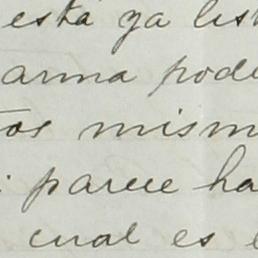 está ya list
arma pode
tos mism
parece ha
cual es e